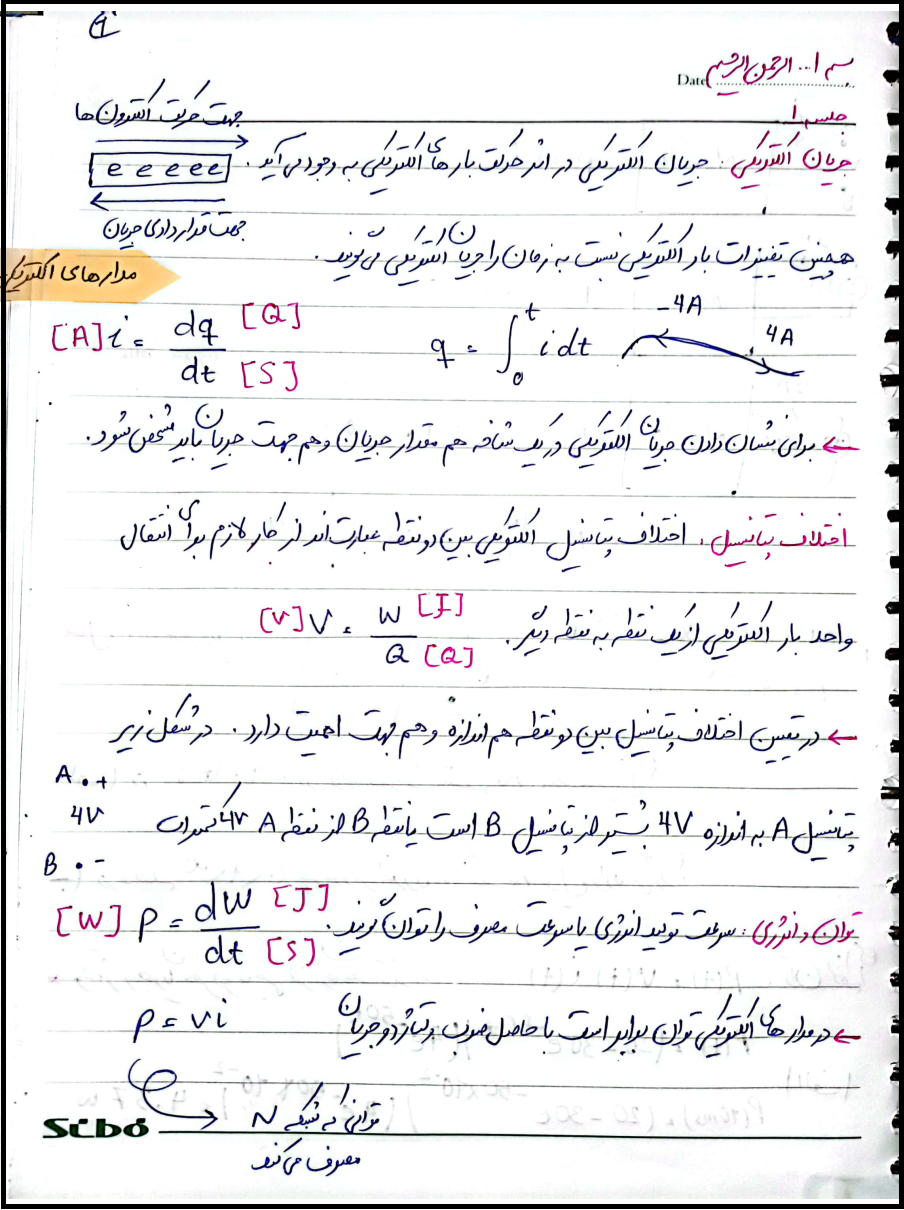 1
بسم ا... الرحمن الرحیم
Date
جلسه 1
جهت حرکت الکترون ها
جریان الکتریکی: جریان الکتریکی در اثر حرکت بارهای الکتریکی به وجود می آید.
e e e e e
جهت قراردادی جریان
همچنین تغییرات بار الکتریکی نسبت به زمان را جریان الکتریکی می گویند.
مدارهای الکتریکی
[A] i = dq [Q] / dt [S]
q = ∫₀ᵗ i dt
-4A
4A
← برای نشان دادن جریان الکتریکی در یک شاخه هم مقدار جریان و هم جهت جریان باید مشخص شود.
اختلاف پتانسیل: اختلاف پتانسیل الکتریکی بین دو نقطه عبارت اند از کار لازم برای انتقال
واحد بار الکتریکی از یک نقطه به نقطه دیگر.
[V] V = W [J] / Q [Q]
← در تعیین اختلاف پتانسیل بین دو نقطه هم اندازه و هم جهت اهمیت دارد. در شکل زیر
A . +
4V
B . -
پتانسیل A به اندازه 4V بیشتر از پتانسیل B است یا نقطه B از نقطه A 4V کمتر است
توان و انرژی: سرعت تولید انرژی یا سرعت مصرف را توان گویند.
[W] P = dW [J] / dt [S]
← در مدارهای الکتریکی توان برابر است با حاصل ضرب ولتاژ در جریان
P = vi
توانی که شبکه N
مصرف می کند
Sibo